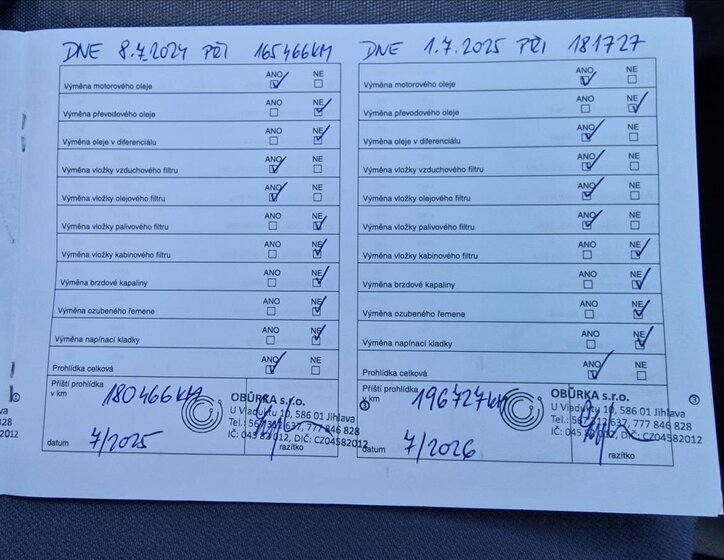 DNE 8.7.2024 PŘI 165466KM
ANO NE
Výměna motorového oleje
ANO NE
Výměna převodového oleje
ANO NE
Výměna oleje v diferenciálu
ANO NE
Výměna vložky vzduchového filtru
ANO NE
Výměna vložky olejového filtru
ANO NE
Výměna vložky palivového filtru
ANO NE
Výměna vložky kabinového filtru
ANO NE
Výměna brzdové kapaliny
ANO NE
Výměna ozubeného řemene
ANO NE
Výměna napínací kladky
ANO NE
Prohlídka celková
Příští prohlídka
v km 180466KM
datum 7/2025
OBŮRKA s.r.o.
U Viaduktu 10, 586 01 Jihlava
637, 777 846 828
DIČ: CZ04582012
razítko
3
DNE 1.7.2025 PŘI 181727
ANO NE
Výměna motorového oleje
ANO NE
Výměna převodového oleje
ANO NE
Výměna oleje v diferenciálu
ANO NE
Výměna vložky vzduchového filtru
ANO NE
Výměna vložky olejového filtru
ANO NE
Výměna vložky palivového filtru
ANO NE
Výměna vložky kabinového filtru
ANO NE
Výměna brzdové kapaliny
ANO NE
Výměna ozubeného řemene
ANO NE
Výměna napínací kladky
ANO NE
Prohlídka celková
Příští prohlídka
v km 196727KM
datum 7/2026
OBŮRKA s.r.o.
U Viaduktu 10, 586 01 Jihlava
637, 777 846 828
DIČ: CZ04582012
razítko
3